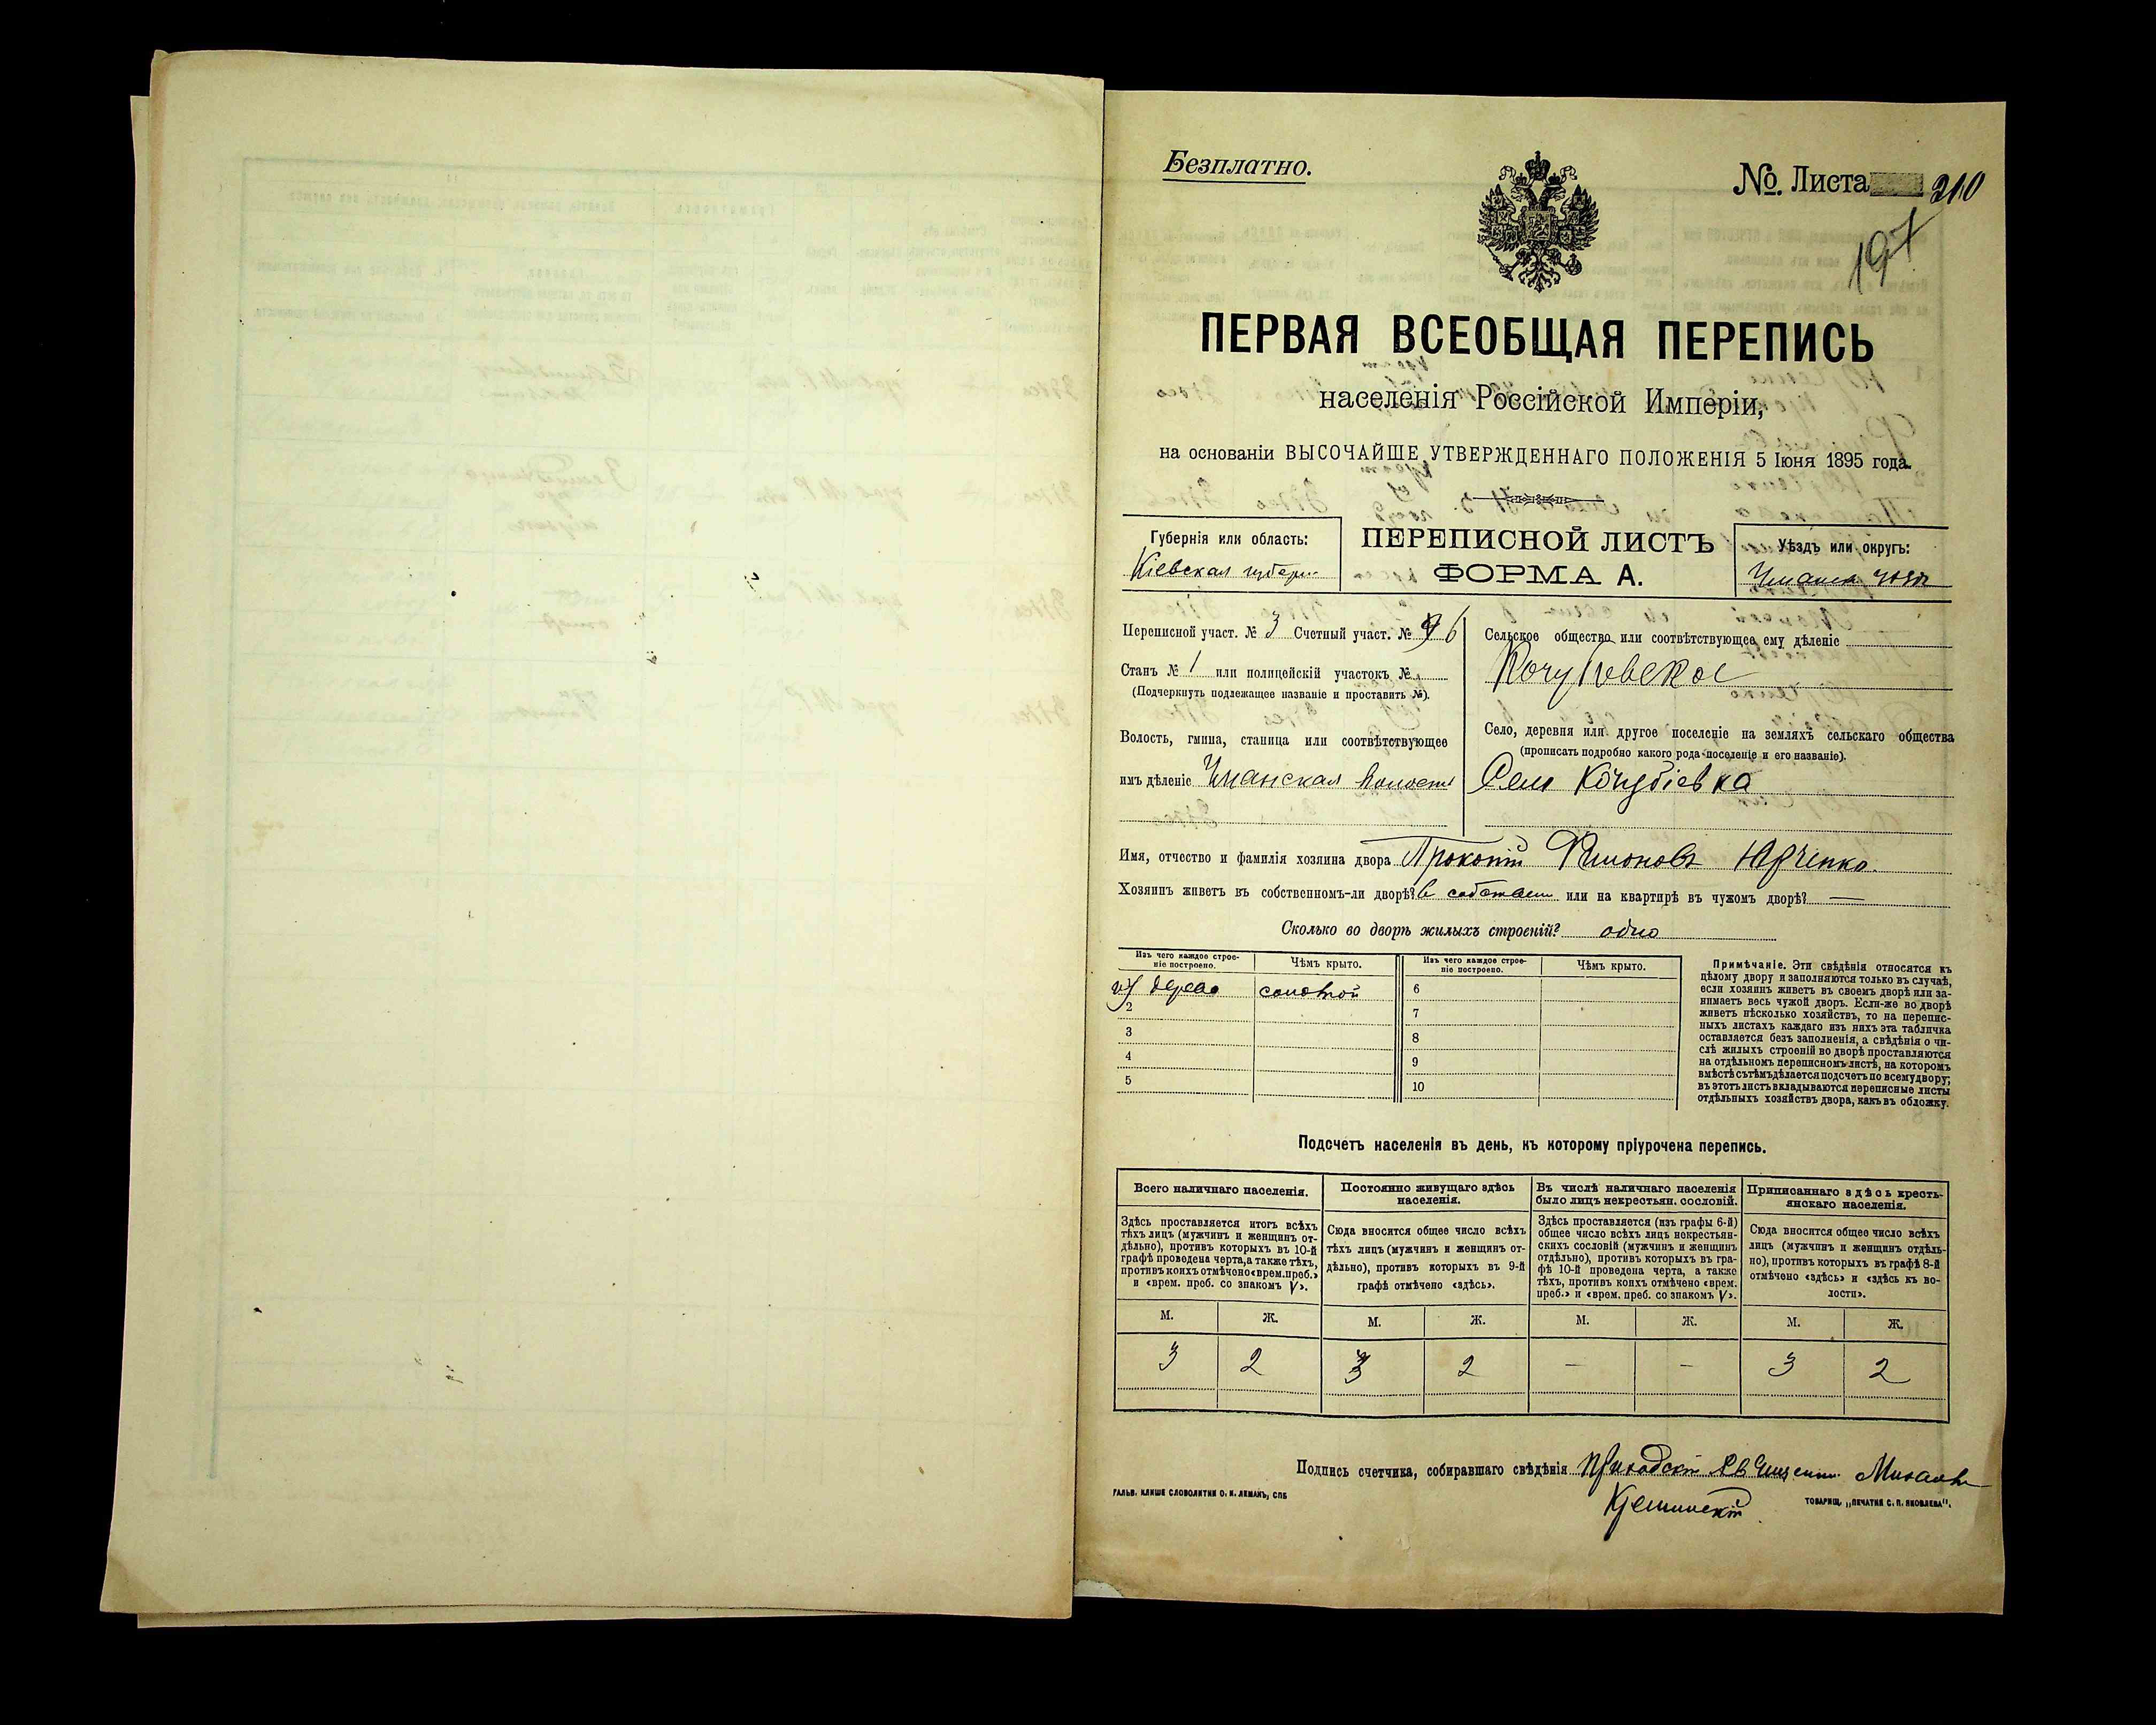 Безплатно.
№ Листа 210
197
ПЕРВАЯ ВСЕОБЩАЯ ПЕРЕПИСЬ
населенія Россійской Имперіи,
на основаніи ВЫСОЧАЙШЕ УТВЕРЖДЕННАГО ПОЛОЖЕНІЯ 5 Іюня 1895 года.
Губернія или область:
Кіевская губерн
ПЕРЕПИСНОЙ ЛИСТЪ
ФОРМА А.
Уѣздъ или округъ:
Переписной участ. № 3 Счетный участ. № 6
Станъ № 1 или полицейскій участокъ №
(Подчеркнуть подлежащее названіе и проставить №).
Волость, гмина, станица или соотвѣтствующее
имъ дѣленіе Уманская волость
Сельское общество или соотвѣтствующее ему дѣленіе
Кочубіевское
Село, деревня или другое поселеніе на земляхъ сельскаго общества
(прописать подробно какого рода поселеніе и его названіе).
Село Кочубіевка
Имя, отчество и фамилія хозяина двора Прокопій Юрченко.
Хозяинъ живетъ въ собственномъ-ли дворѣ? в собствен или на квартирѣ въ чужомъ дворѣ? —
Сколько во дворѣ жилыхъ строеній? одно
Изъ чего каждое строе-
ніе построено.
Чѣмъ крыто.
Изъ чего каждое строе-
ніе построено.
Чѣмъ крыто.
из дерева соломой
2
3
4
5
6
7
8
9
10
Примѣчаніе. Эти свѣдѣнія относятся къ
цѣлому двору и заполняются только въ случаѣ,
если хозяинъ живетъ въ своемъ дворѣ или за-
нимаетъ весь чужой дворъ. Если-же во дворѣ
живетъ нѣсколько хозяйствъ, то на перепис-
ныхъ листахъ каждаго изъ нихъ эта табличка
оставляется безъ заполненія, а свѣдѣнія о чи-
слѣ жилыхъ строеній во дворѣ проставляются
на отдѣльномъ переписномъ листѣ, на которомъ
вмѣстѣ съ тѣмъ дѣлается подсчетъ по всему двору;
въ этотъ листъ вкладываются переписные листы
отдѣльныхъ хозяйствъ двора, какъ въ обложку.
Подсчетъ населенія въ день, къ которому пріурочена перепись.
Всего наличнаго населенія.
Здѣсь проставляется итогъ всѣхъ
тѣхъ лицъ (мужчинъ и женщинъ от-
дѣльно), противъ которыхъ въ 10-й
графѣ проведена черта, а также тѣхъ,
противъ коихъ отмѣчено «врем. преб.»
и «врем. преб. со знакомъ V».
Постоянно живущаго здѣсь
населенія.
Сюда вносится общее число всѣхъ
тѣхъ лицъ (мужчинъ и женщинъ от-
дѣльно), противъ которыхъ въ 9-й
графѣ отмѣчено «здѣсь».
Въ числѣ наличнаго населенія
было лицъ некрестьян. сословій.
Здѣсь проставляется (изъ графы 6-й)
общее число всѣхъ лицъ некрестьян-
скихъ сословій (мужчинъ и женщинъ
отдѣльно), противъ которыхъ въ гра-
фѣ 10-й проведена черта, а также
тѣхъ, противъ коихъ отмѣчено «врем.
преб.» и «врем. преб. со знакомъ V».
Приписаннаго здѣсь кресть-
янскаго населенія.
Сюда вносится общее число всѣхъ
лицъ (мужчинъ и женщинъ отдѣль-
но), противъ которыхъ въ графѣ 8-й
отмѣчено «здѣсь» и «здѣсь къ во-
лости».
М. Ж. М. Ж. М. Ж. М. Ж.
3 2 3 2 — — 3 2
Подпись счетчика, собиравшаго свѣдѣнія
ГАЛЬВ. КЛИШЕ СЛОВОЛИТНИ О. И. ЛЕМАНЪ, СПБ
ТОВАРИЩ. „ПЕЧАТНЯ С. П. ЯКОВЛЕВА".